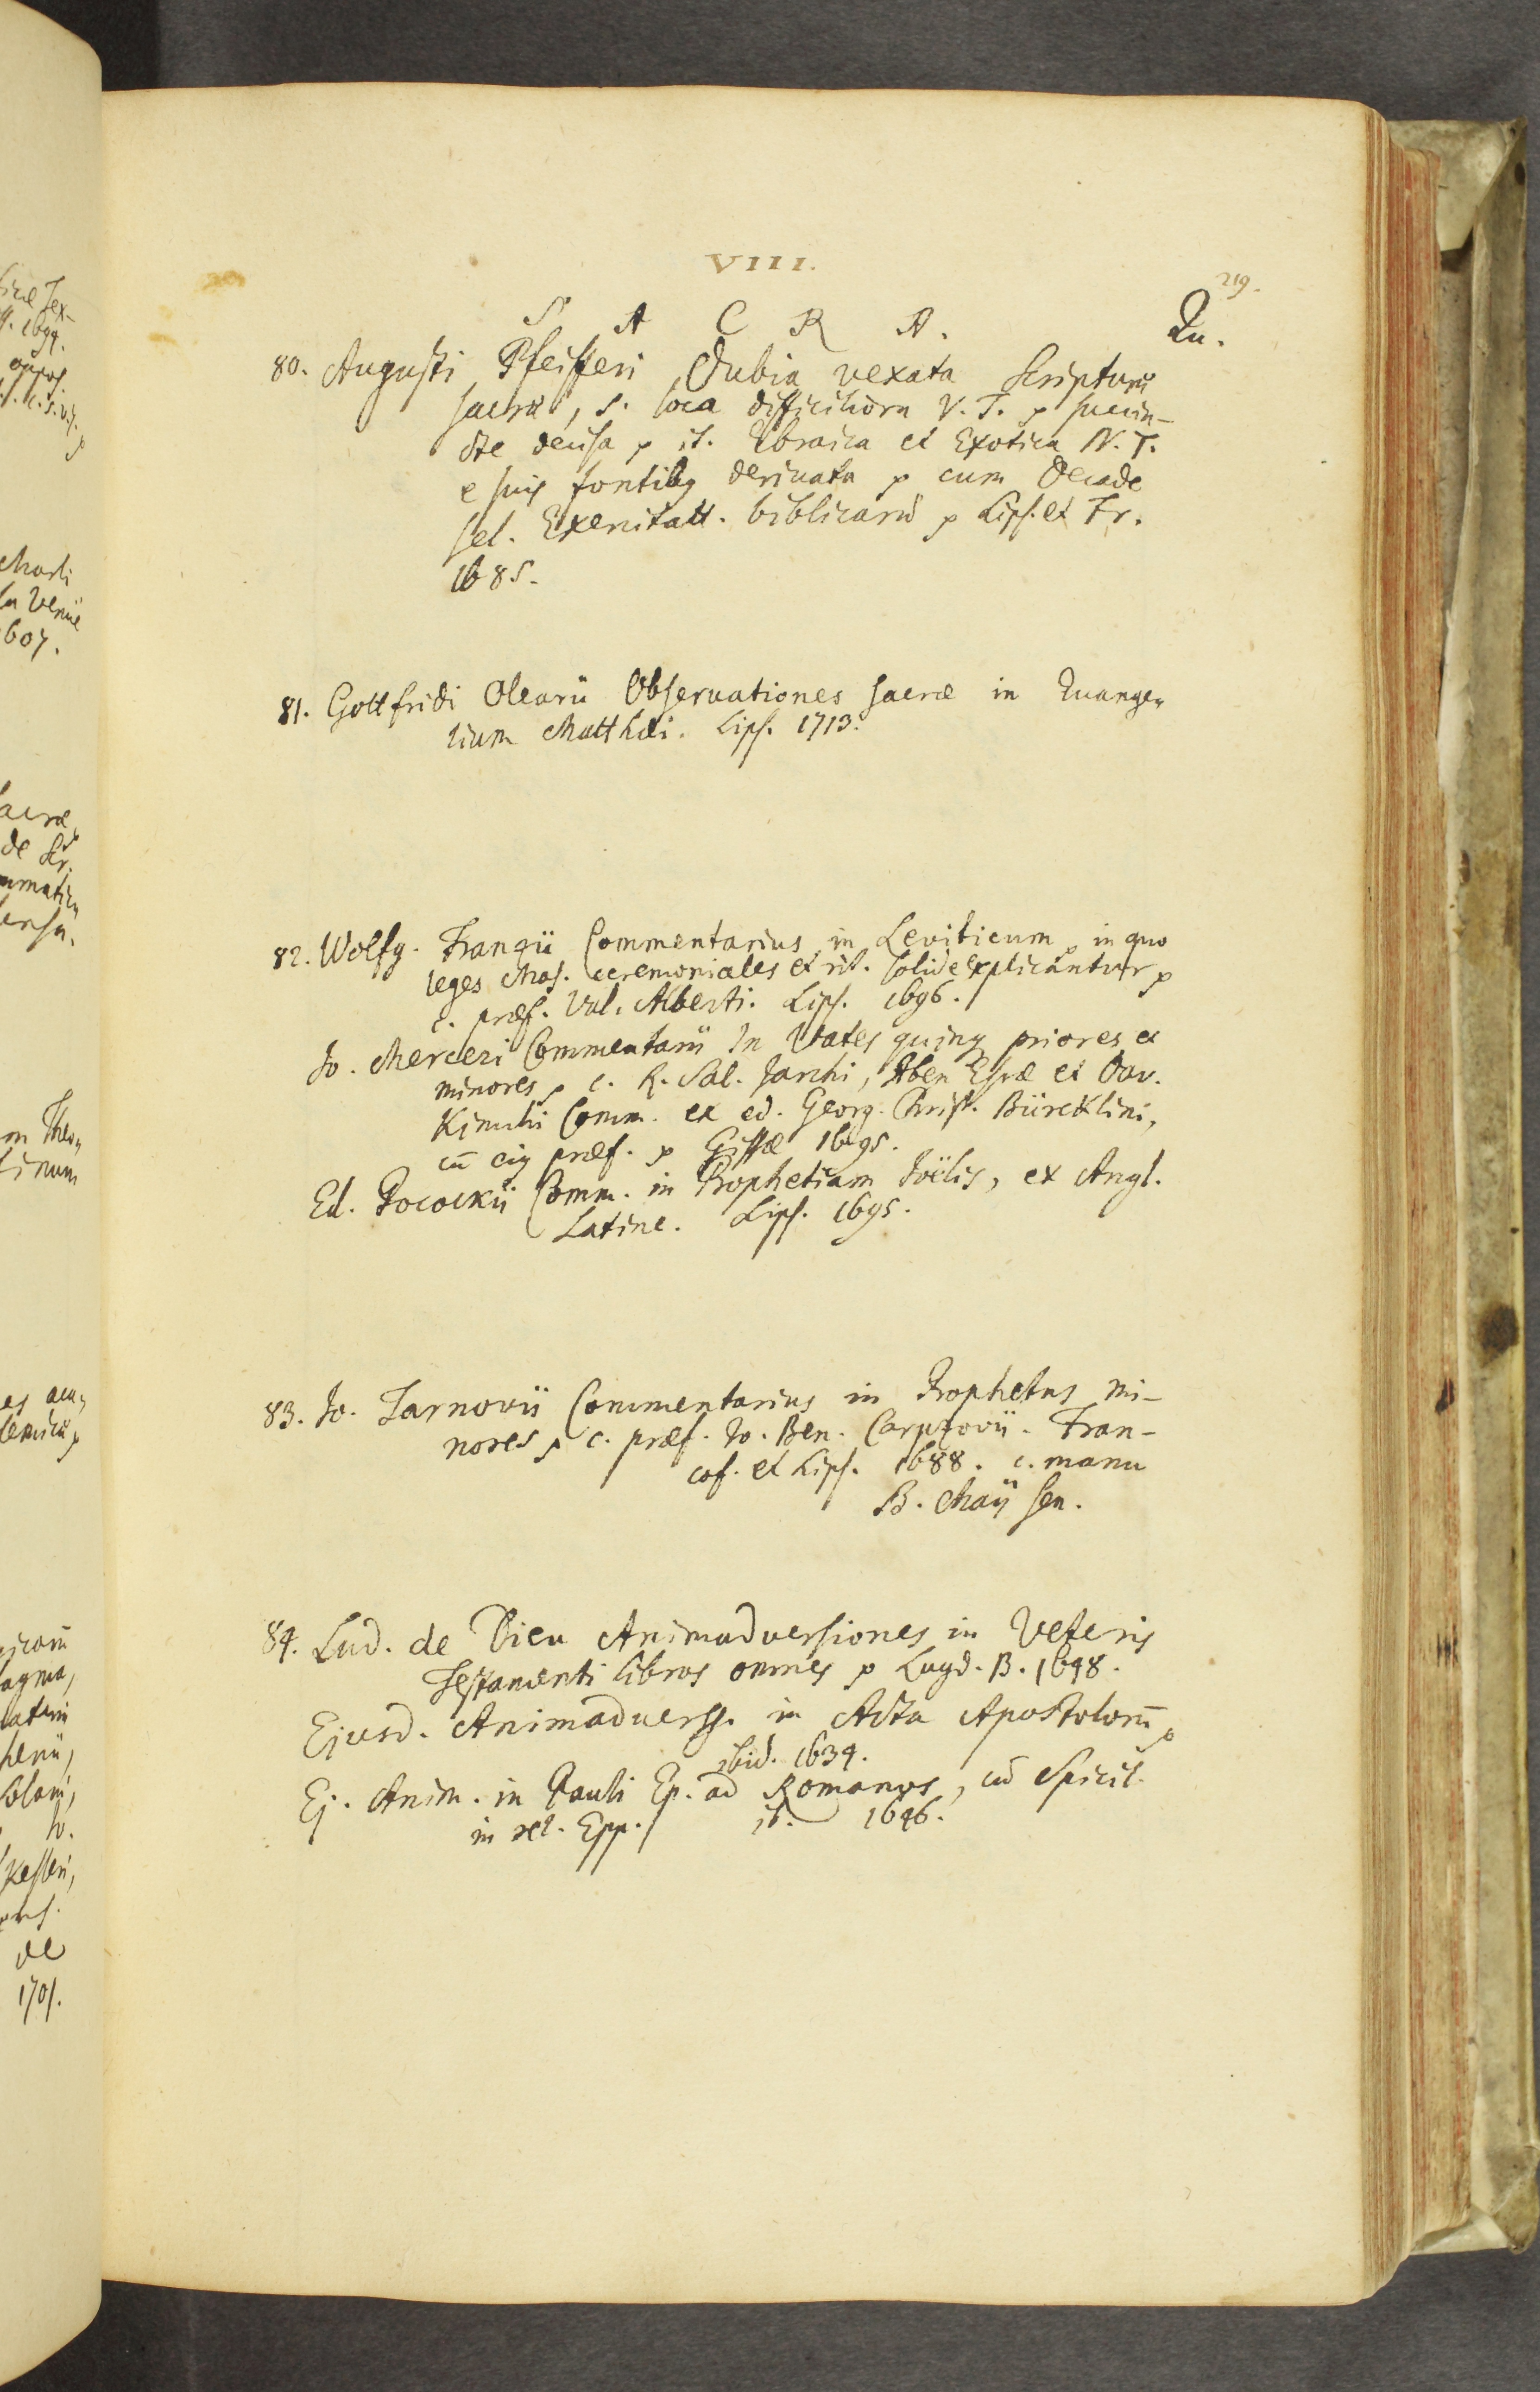 VIII.
219.
S A C R A. Qu.
80. Augusti Pfeifferi Dubia vexata Scripturæ
sacræ, s. loca difficiliora V. T. p succin-
cte decisa p it. Ebraica et Exotica N. T.
e suis fontibq derivata p cum Decade
sel. Exercitatt. biblicarū p Lips. et Fr.
1685.
81. Gottfridi Olearii Observationes sacræ in Euange-
lium Matthæi. Lips. 1713.
82. Wolfg. Franzii Commentarius in Leviticum p in quo
leges Mos. ceremoniales et rit. solide explicantur p
c. præf. Val. Alberti. Lips. 1696.
Jo. Merceri Commentarii in Vates quinq priores ex
minores p c. R. Sal. Jarchi, Aben Esræ et Dav.
Kimchi Comm. ex ed. Georg. Christ. Bürcklini,
cū eiq præf. p Gissæ 1695.
Ed. Pocockii Comm. in Prophetiam Joëlis, ex Angl.
Latine. Lips. 1695.
83. Jo. Tarnovii Commentarius in Prophetas mi-
nores p c. præf. Jo. Ben. Carpzovii. Fran-
cof. et Lips. 1688. c. manu
B. Maÿ sen.
84. Lud. de Dieu Animadversiones in Veteris
Testamenti libros omnes p Lugd. B. 1648.
Ejusd. Animadverss. in Acta Apostolorū p
ibid. 1634.
Ej. Anim. in Pauli Ep. ad Romanos, cū Spicil.
in rel. Epp. ib. 1646.